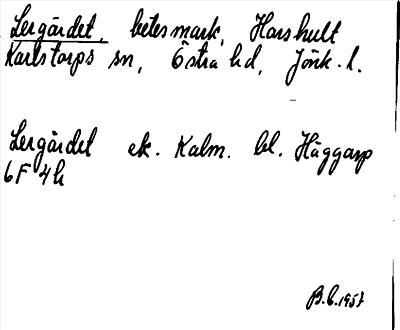 Lergärdet, betesmark, Horshult
Karlstorps sn, Östra hd, Jönk. l.
Lergärdet ek. Kalm. bl. Häggarp
6F 4h
B.E. 1957